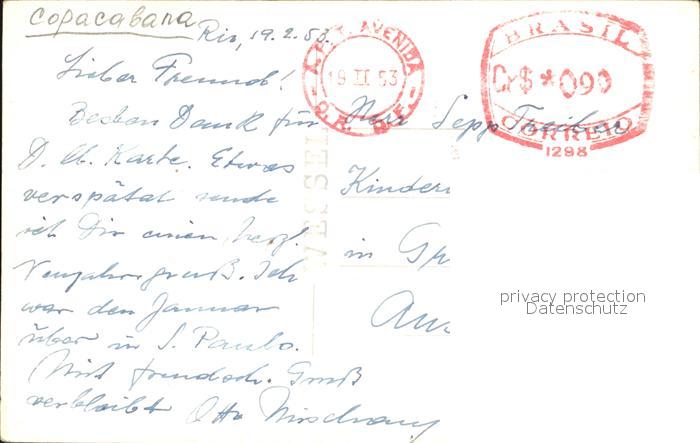 Copacabana
Rio, 19.2.53.
Lieber Freund!
Besten Dank für
D. lb. Karte. Etwas
verspätet sende
ich Dir einen herzl.
Neujahrsgruß. Ich
war den Januar
über in S. Paulo.
Mit freundsch. Gruß
verbleibt Otto
A.P.T. AVENIDA
19 II 53
D.F.
BRASIL
Cr$ *090
CORREIO
1298
Herr Sepp Treiber
Kinder
in Gr
WESSEL
privacy protection
Datenschutz